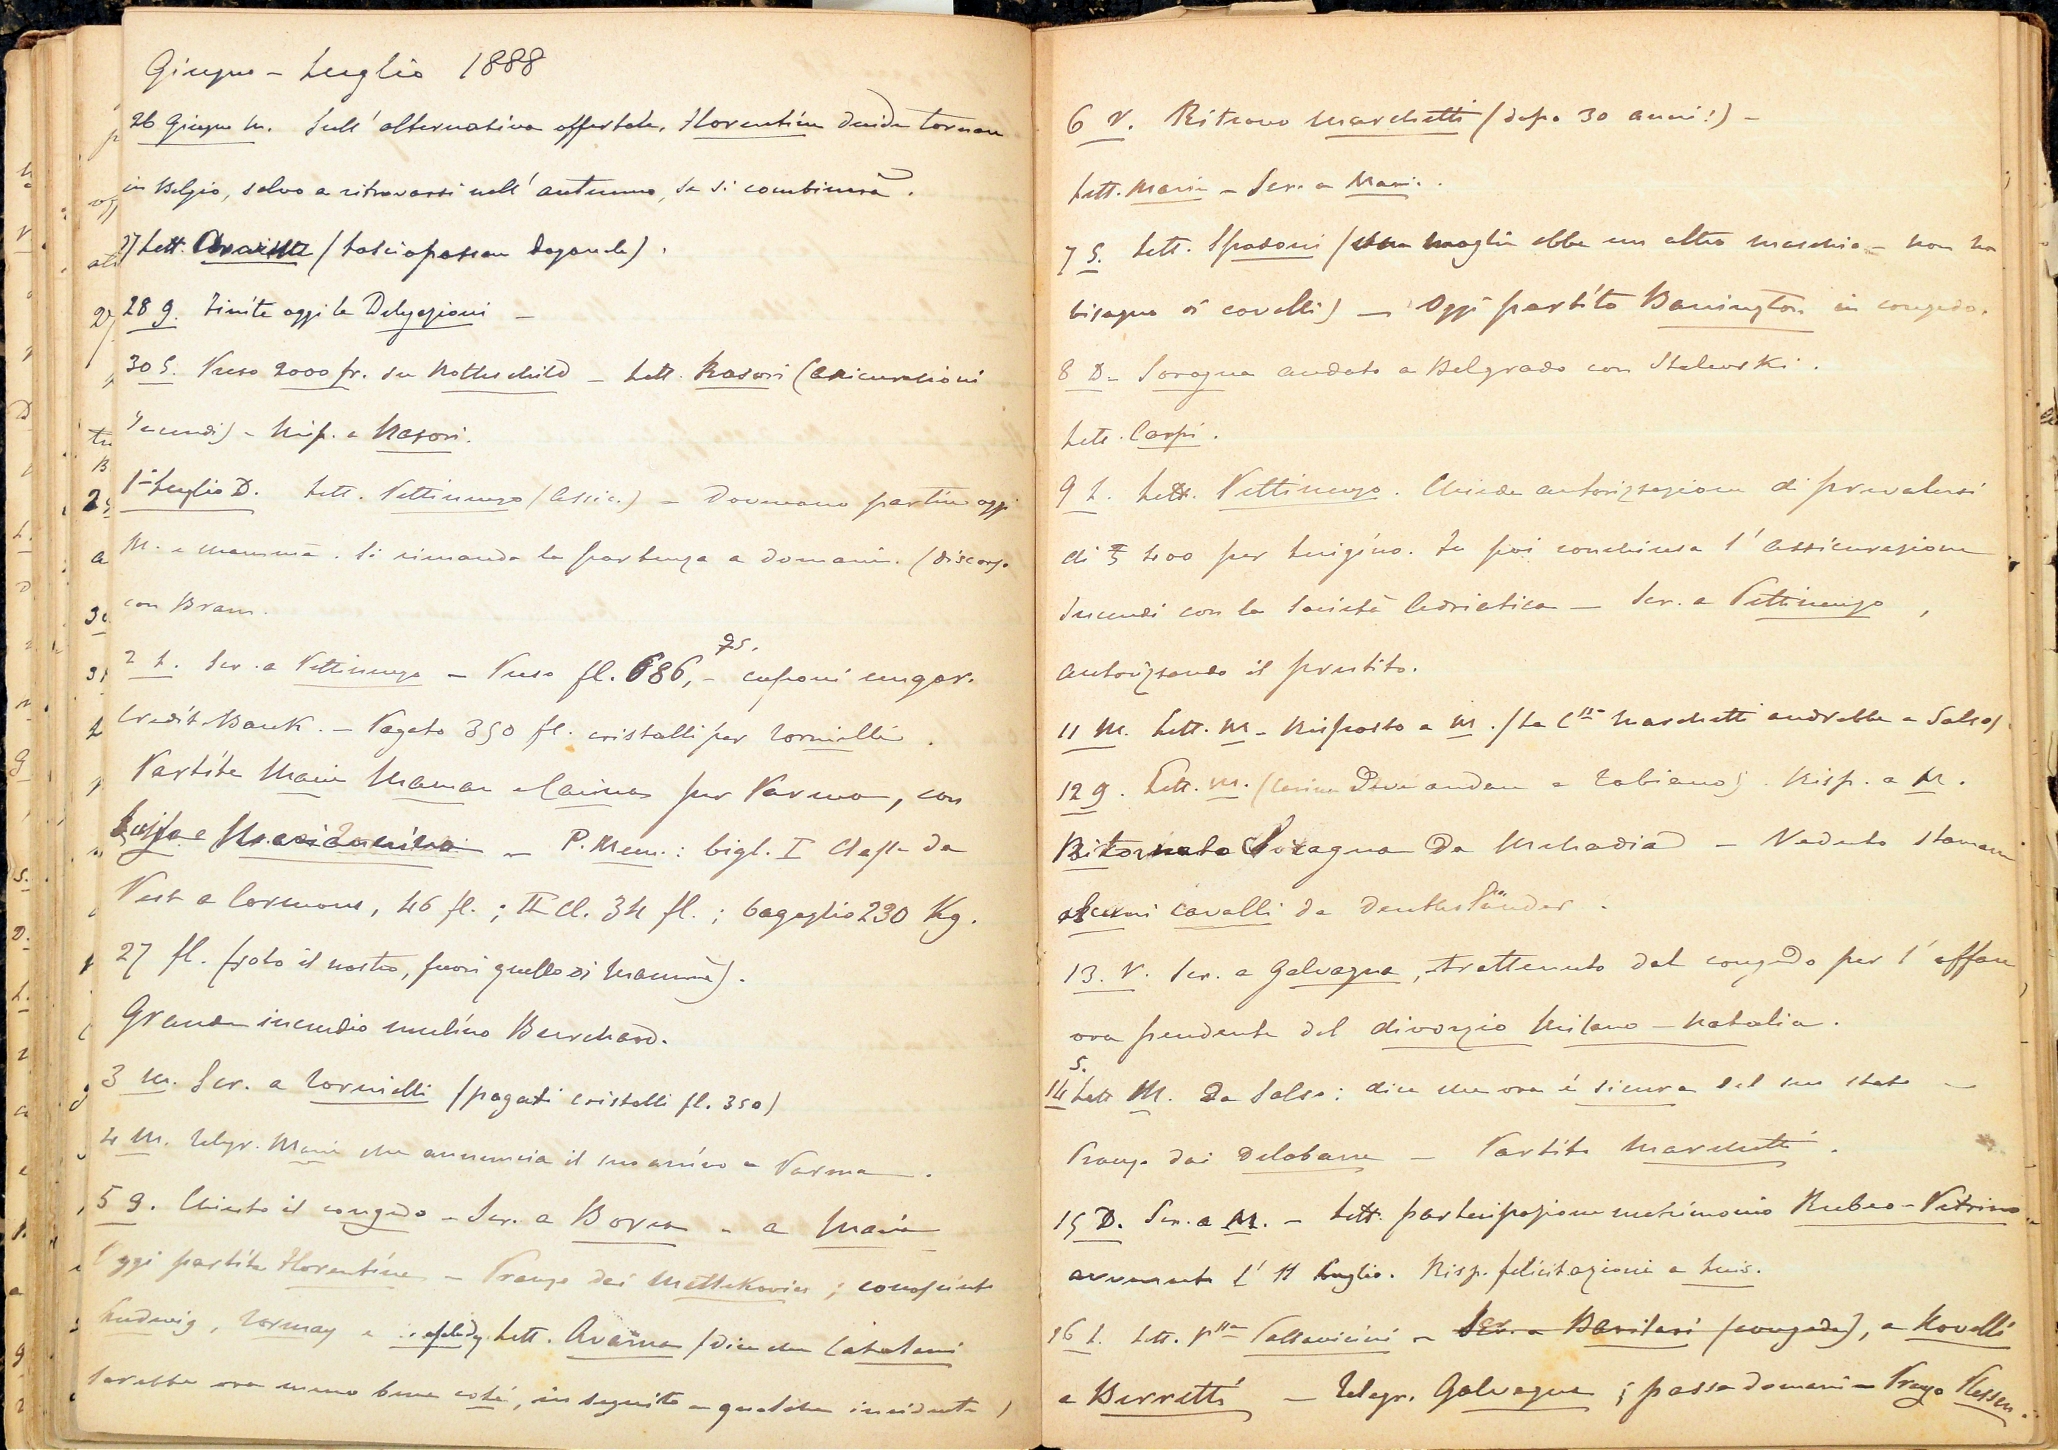 Giugno - Luglio 1888
26 Giugno M. Sull'alternativa offertale, Florentine decide tornare
in Belgio, salvo a ritrovarsi nell'autunno, se si combinerà.
27 Lett. (lasciapassare dogande).
28 G. Finite oggi le Delegazioni -
30 S. Preso 2000 fr. su Rothschild - Lett. Rasori (assicurazioni
incendi) - Risp. a Rasori.
1° Luglio D. Lett. Pettinengo (Assic.) - Dovevano partire oggi
M. e mammà. Si rimanda la partenza a domani. (discorso
con Bram.
2 L. Scr. a Pettinengo - Preso fl. 686,75. - cuponi ungar.
Credit-Bank. - Pagato 350 fl. cristalli per Tornielli.
Partite Marie Maman e Carina per Parma, con
- P. Mem.: bigl. I Classe da
Pest a Cormons, 46 fl.; II Cl. 34 fl.; bagaglio 230 Kg.
27 fl. (solo il nostro, fuori quello di Mammà).
Grande incendio mulino Burchard.
3 M. Scr. a Tornielli (pagati cristalli fl. 350)
4 M. Telegr. Marie che annuncia il suo arrivo a Parma.
5 G. Chiesto il congedo - Scr. a Borea - a Marie
Oggi partita Florentine - Pranzo dai ; conosciuto
Ludwig, Tormay e Lett. Avarna (dice che Catalani
sarebbe ora meno bene colà, in seguito a qualche incidente)
6 V. Ritrovo Marchetti (dopo 30 anni!) -
Lett. Marie - Scr. a Marie.
7 S. Lett. Spadoni (sua moglie ebbe un altro maschio - non ha
bisogno di cavalli) - Oggi partito Barrington in congedo.
8 D. Soragna andato a Belgrado con
Lett. Carpi.
9 L. Lett. Pettinengo. Chiede autorizzazione di prevalersi
di 400 per Luigino. Ha poi conchiusa l'assicurazione
Incendi con la Società Adriatica - Scr. a Pettinengo,
autorizzando il prestito.
11 M. Lett. M. - Risposto a M. (la Cssa Marchetti andrebbe a Salso).
12 G. Lett. M. (Carina andare a Tabiano). Risp. a M.
Ritornato Soragna da Mehadia - Veduto stamane
alcuni cavalli da
13. V. Scr. a Galvagna, trattenuto dal congedo per l'affare
ora pendente del divorzio Milano - Natalia.
14 S. Lett. M. da Salso: dice che ora è sicura del suo stato -
Pranzo dai Delabarre - Partito Marchetti.
15 D. Scr. a M. - Lett. partecipazione matrimonio Rubeo-
avvenuto l'11 Luglio. Risp. felicitazioni a Luis.
16 L. Lett. Pssa Pallavicini - Scr. a Basilari (congedo), a Novelli
a Berretti - Telegr. Galvagna; passa domani - Pranzo